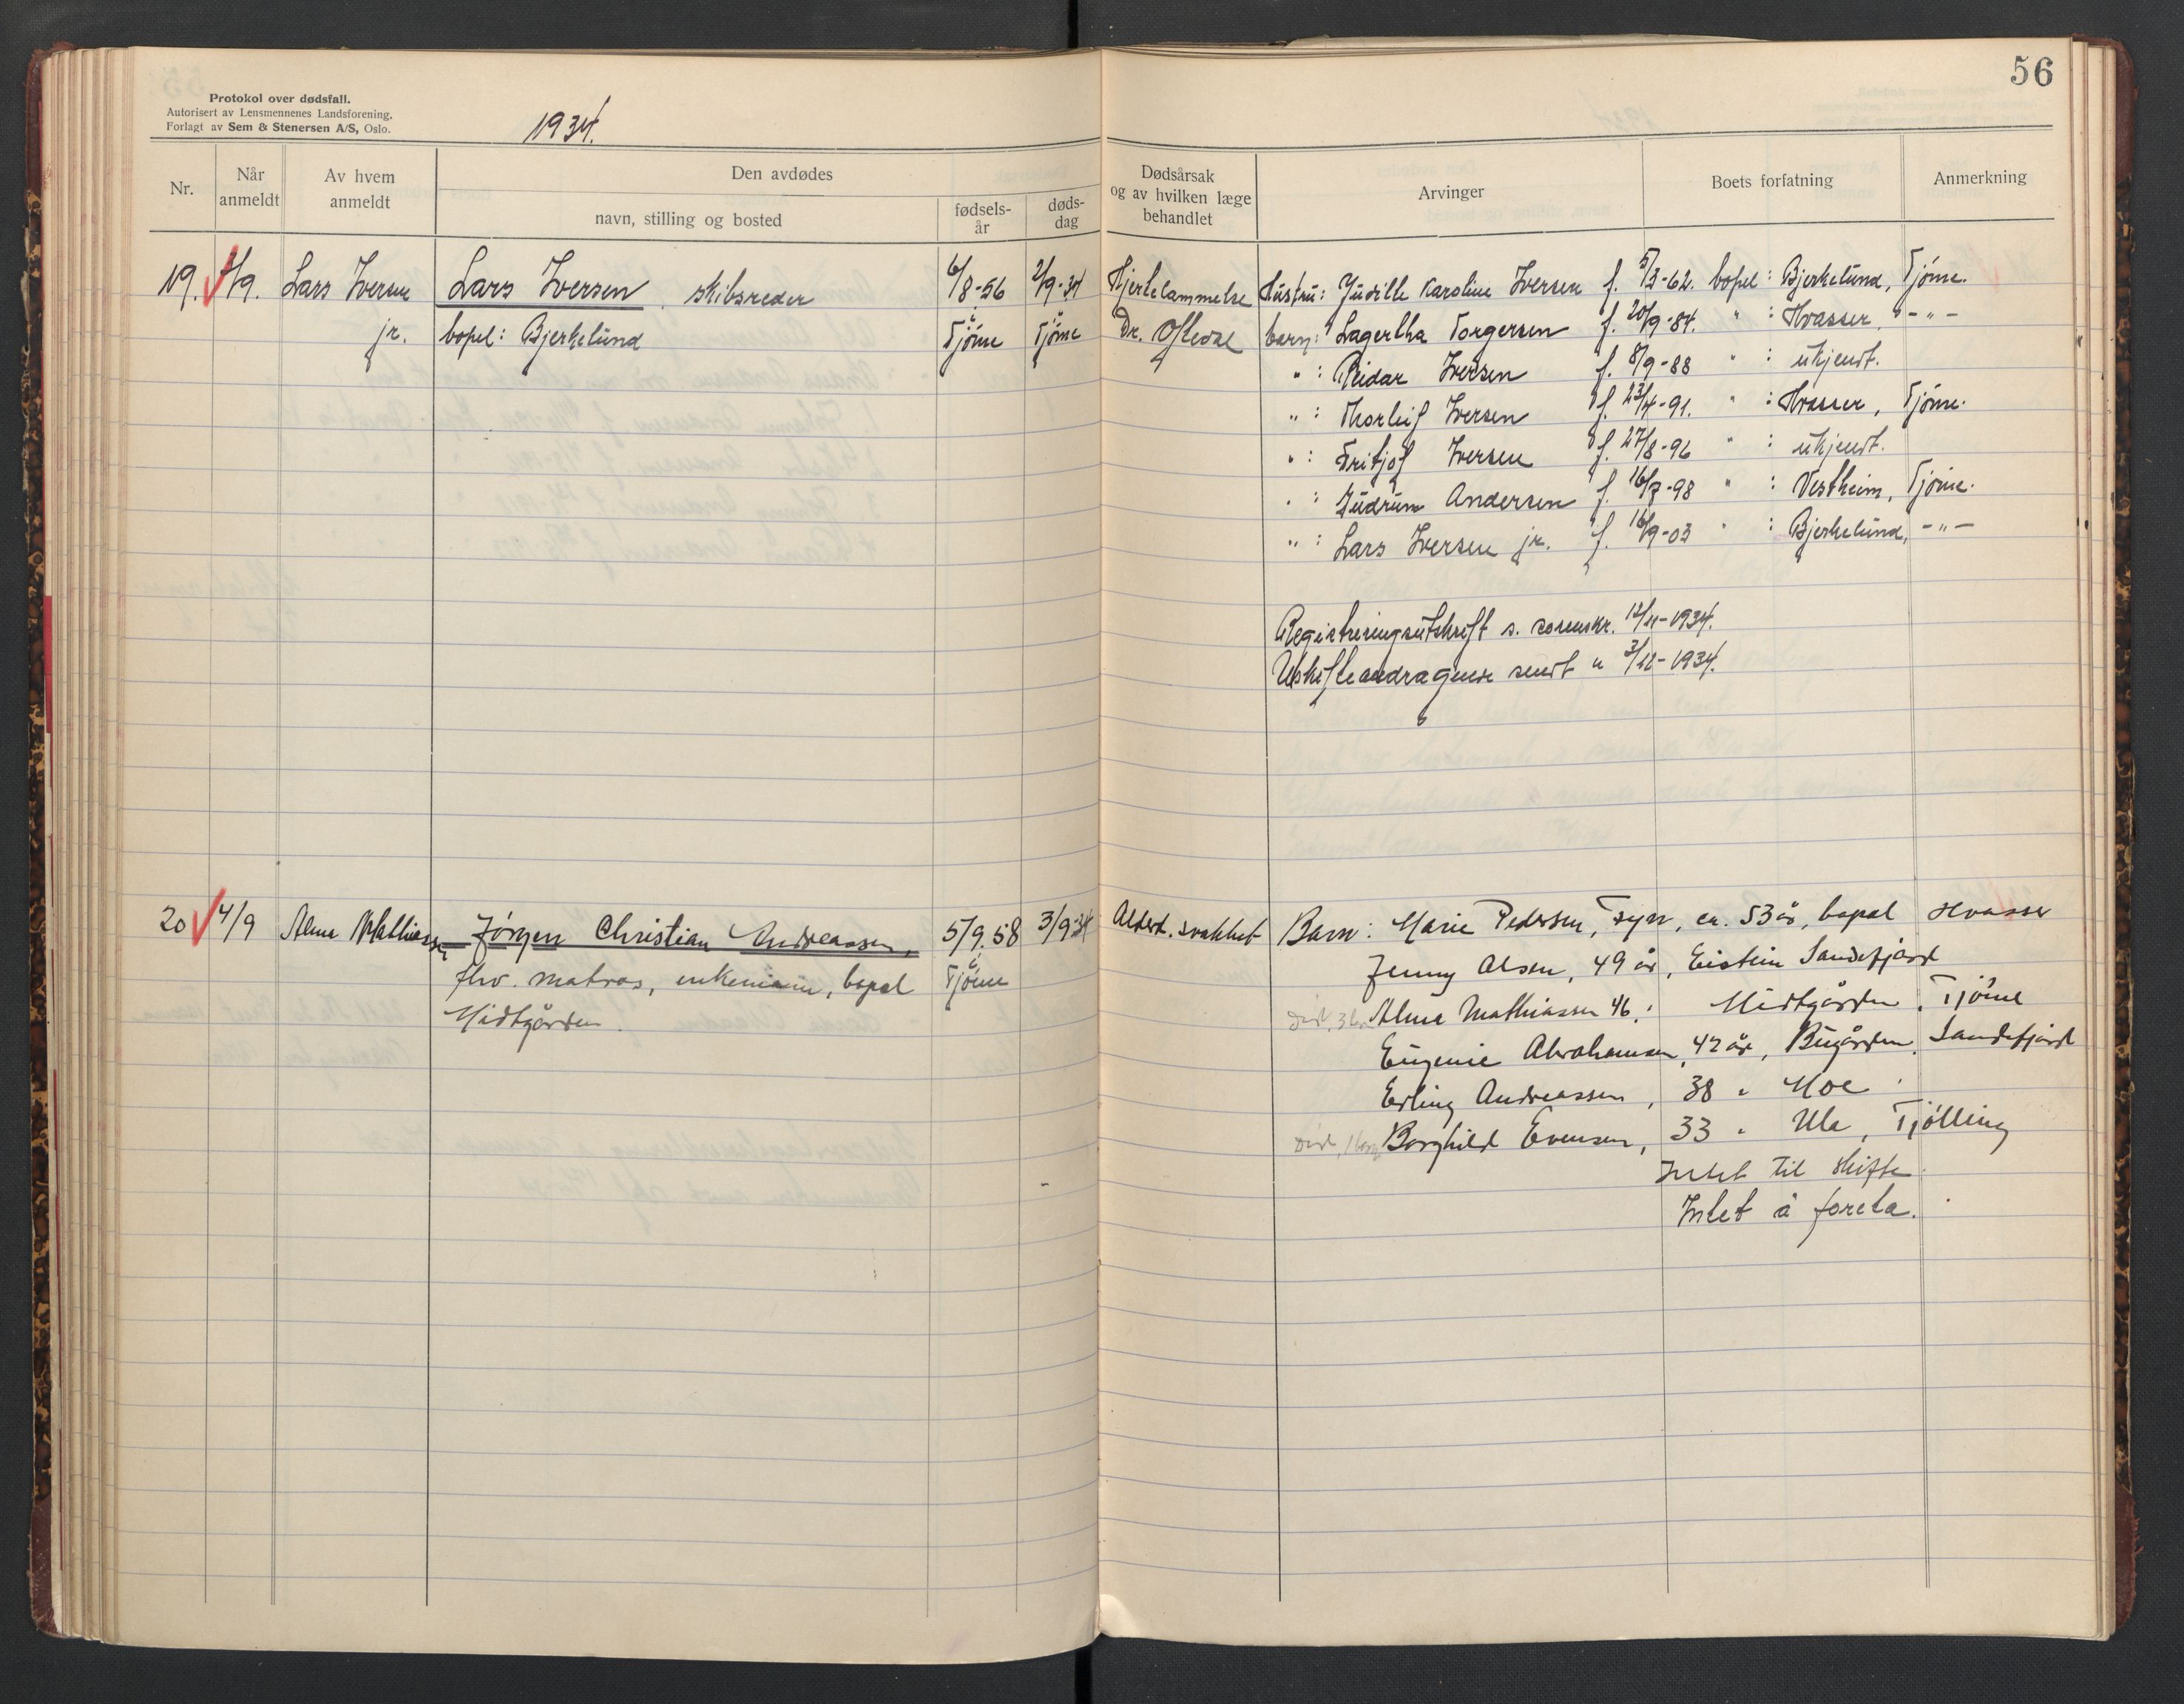 56
Protokol over dødsfall.
Autorisert av Lensmennenes Landsforening.
Forlagt av Sem & Stenersen A/S, Oslo.
1934.
Nr.
Når anmeldt
Av hvem anmeldt
Den avdødes
navn, stilling og bosted
fødsels-år
døds-dag
Dødsårsak og av hvilken læge behandlet
Arvinger
Boets forfatning
Anmerkning
19. 4/9. Lars Iversen Lars Iversen, skibsreder 6/8-56 2/9-34 Hjertelammelse Hustru: Karoline Iversen f. 5/3-62. bopel: Bjerkelund, Tjöme.
jr. bopel: Bjerkelund Tjöme Tjöme Dr. Oftedal barn: Lagertha Torgersen f. 20/9-84. " : Hvasser, -"-
" : Reidar Iversen f. 8/9-88 " : ukjendt.
" : Thorleif Iversen f. 23/4-91. " : Hvasser, Tjöme.
" : Fritjof Iversen f. 27/8-96 " : ukjendt.
" : Gudrun Andersen f. 16/7-98 " : Vestheim, Tjöme.
" : Lars Iversen jr. f. 16/9-03 " : Bjerkelund, -"-
Registreringsutskrift s. sorenskr. 12/11-1934.
Uskifteandragende sendt " 3/12-1934.
20 4/9 Alma Mathiassen Jörgen Christian Andreassen, 5/9.58 3/9-34 Alderd. svakhet Barn: Marie Pedersen, ca. 53 år, bopel Hvasser
fhv. matros, enkemann, bopel Tjöme Jenny Olsen, 49 år, Eistein Sandefjord
Midtgården. död, 3 Alma Mathiassen 46, " Midtgården, Tjöme
Eugenie Abrahamsen, 42 år, Bugården, Sandefjord
Erling Andreassen, 38 " Moe "
död, Borghild Evensen, 33 " Ula, Tjölling
Intet til skifte.
Intet å foreta.